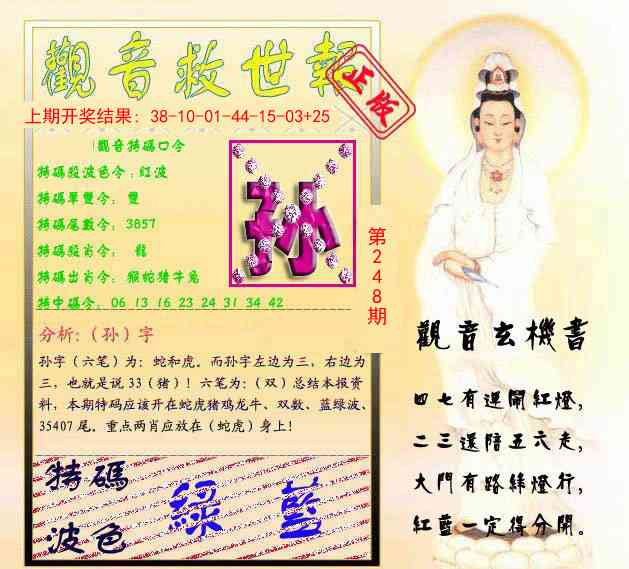 觀音救世報
正版
上期开奖结果：38-10-01-44-15-03+25
觀音特碼口令
特碼殺波色令：紅波
特碼單雙令：雙
特碼尾數令：3857
特碼殺肖令：龍
特碼出肖令：猴蛇猪牛兔
特中碼令：06 13 16 23 24 31 34 42
孙
第248期
分析：（孙）字
孙字（六笔）为：蛇和虎。而孙字左边为三，右边为
三，也就是说33（猪）！六笔为：（双）总结本报资
料，本期特码应该开在蛇虎猪鸡龙牛、双数、蓝绿波、
35407尾。重点两肖应放在（蛇虎）身上！
特碼
波色
綠 藍
觀音玄機書
四七有運開紅燈，
二三還陪五六走，
大門有路綠燈行，
紅藍一定得分開。